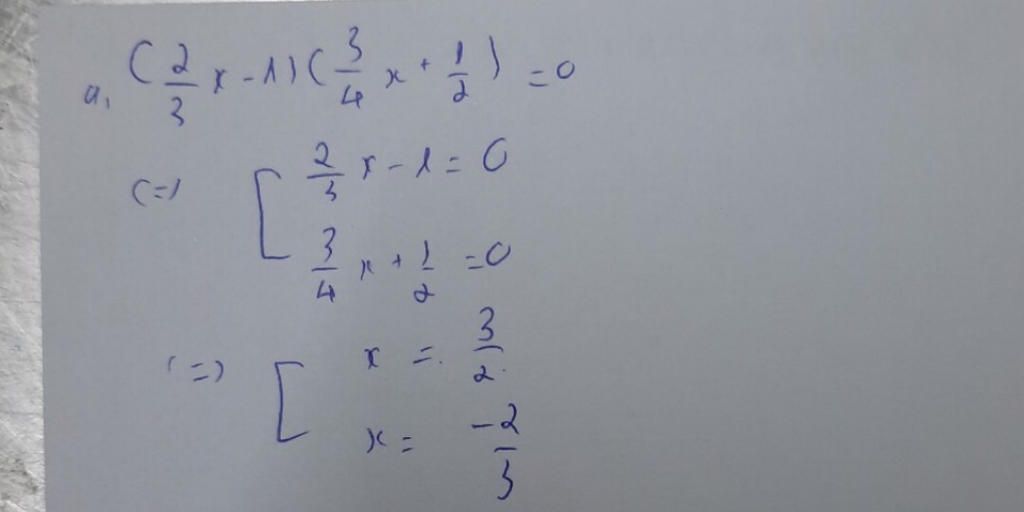 a, (2/3 x - 1)(3/4 x + 1/2) = 0
<=> [ 2/3 x - 1 = 0
3/4 x + 1/2 = 0
<=> [ x = 3/2
x = -2/3